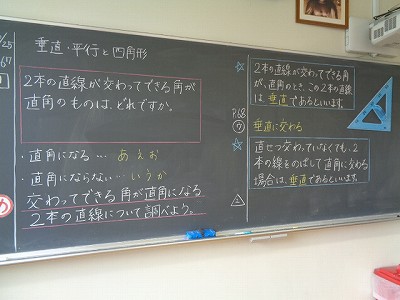 垂直・平行と四角形
/25
67
2本の直線が交わってできる角が
直角のものは、どれですか。
・直角になる… あ え お
・直角にならない… い う か
め
交わってできる角が直角になる
2本の直線について調べよう。
☆
2本の直線が交わってできる角
が、直角のとき、この2本の直線
は垂直であるといいます。
P.68
⑦
垂直に交わる
☆
直せつ交わっていなくても、2
本の線をのばして直角に交わる
場合は、垂直であるといいます。